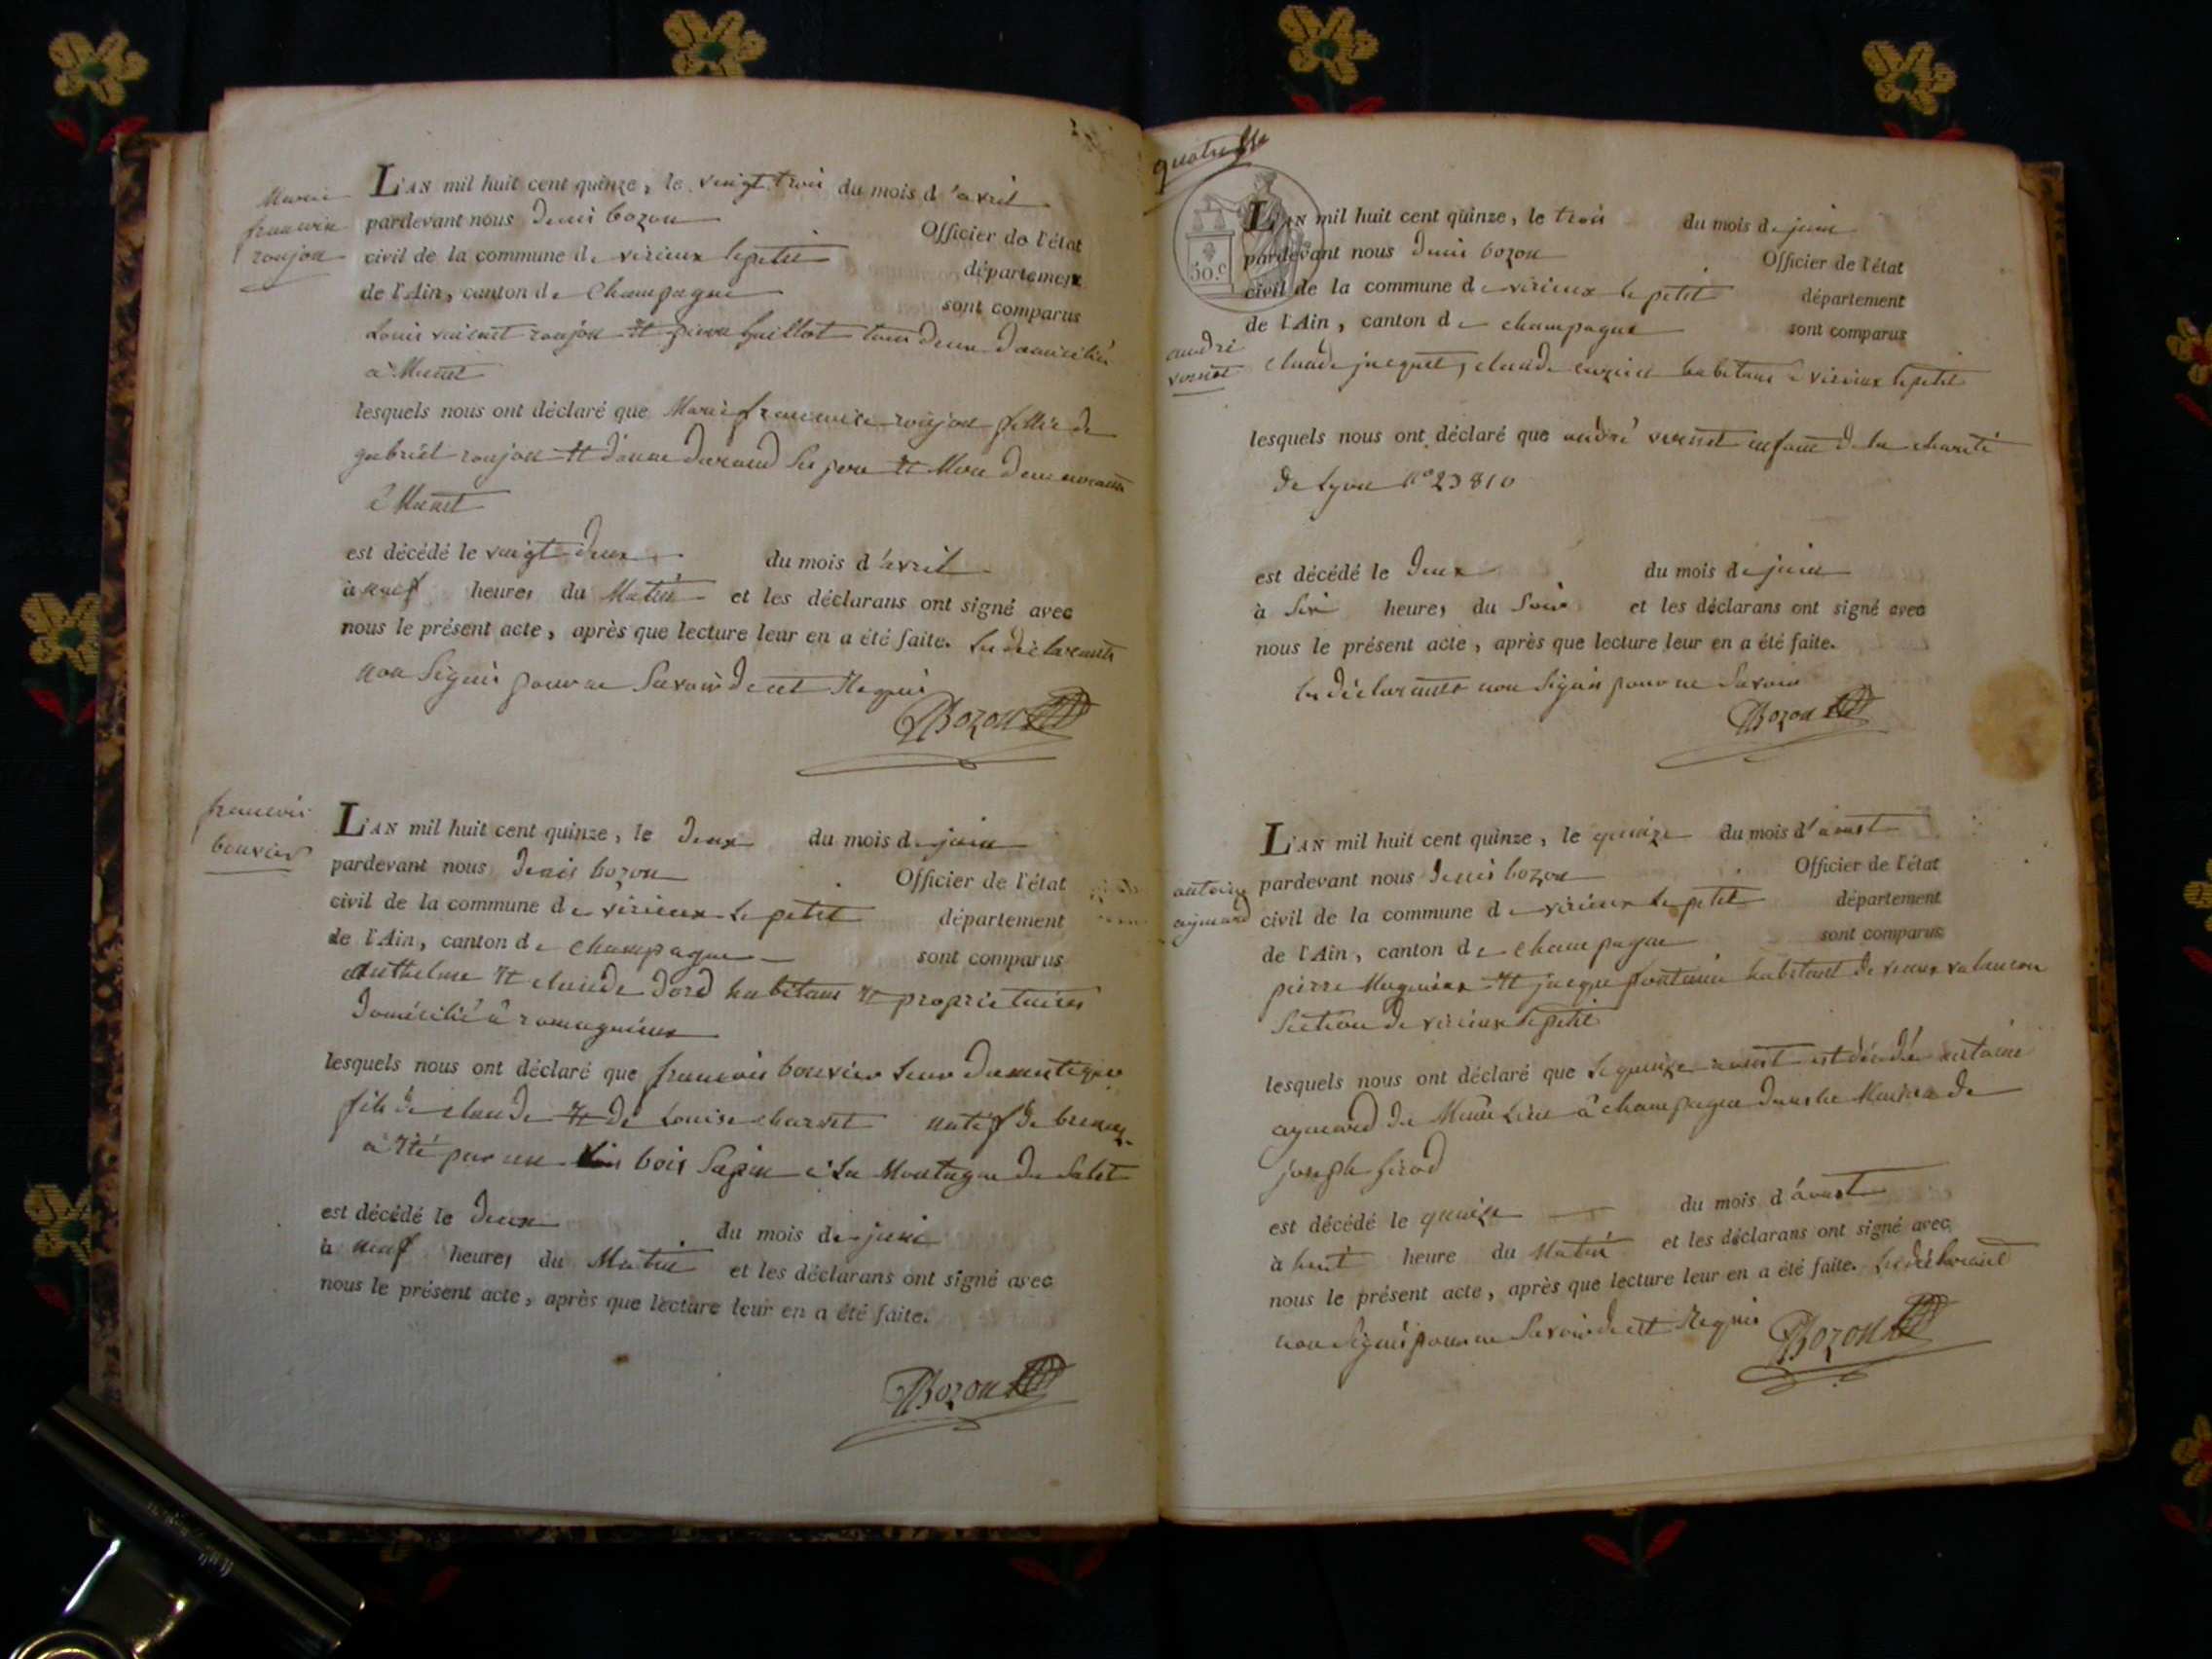 Marie
francoise
roujon
L'AN mil huit cent quinze, le vingt trois du mois d'avril
pardevant nous denis bozon Officier de l'état
civil de la commune de virieux le petit département
de l'Ain, canton de Champagne sont comparus
Louis vincent roujon et pierre tous deux domiciliés
à Munet
lesquels nous ont déclaré que Marie francoise roujon fillie de
gabriel roujon et d'anne durand ses pere et Mere demeurants
à Munet
est décédé le vingt deux du mois d'avril
à neuf heures du Matin et les déclarans ont signé avec
nous le présent acte, après que lecture leur en a été faite. les déclarants
non signés pour ne savoir de cet requis
DBozon
francois
bouvier
L'AN mil huit cent quinze, le deux du mois de juin
pardevant nous denis bozon Officier de l'état
civil de la commune de virieux le petit département
de l'Ain, canton de Champagne sont comparus
Anthelme et claude dord habitans et proprietaires
domicilié à romagnieux
lesquels nous ont déclaré que francois bouvier leur domestique
fils de claude et de Louise charvet natif de
a été par un bois sapin à la Montagne du
est décédé le deux du mois de juin
à neuf heures du Matin et les déclarans ont signé avec
nous le présent acte, après que lecture leur en a été faite.
DBozon
quatre
50.c
L'AN mil huit cent quinze, le trois du mois de juin
pardevant nous denis bozon Officier de l'état
civil de la commune de virieux le petit département
de l'Ain, canton de champagne sont comparus
andré
vernet
claude jacquet, claude habitans à virieux le petit
lesquels nous ont déclaré que andré vernet enfant de la charité
de Lyon n° 23810
est décédé le deux du mois de juin
à six heures du soir et les déclarans ont signé avec
nous le présent acte, après que lecture leur en a été faite.
les déclarants non signés pour ne savoir
DBozon
L'AN mil huit cent quinze, le quinze du mois d'aoust
antoine
aymard
pardevant nous denis bozon Officier de l'état
civil de la commune de virieux le petit département
de l'Ain, canton de champagne sont comparus
pierre Mugnier et jacque fontaine habitant de
section de virieux le petit
lesquels nous ont déclaré que le quinze aoust est décédé antoine
aymard du Même Lieu à champagne dans la Maison de
joseph girod
est décédé le quinze du mois d'aoust
à huit heure du Matin et les déclarans ont signé avec
nous le présent acte, après que lecture leur en a été faite. les déclarant
non signés pour ne savoir de cet requis
DBozon